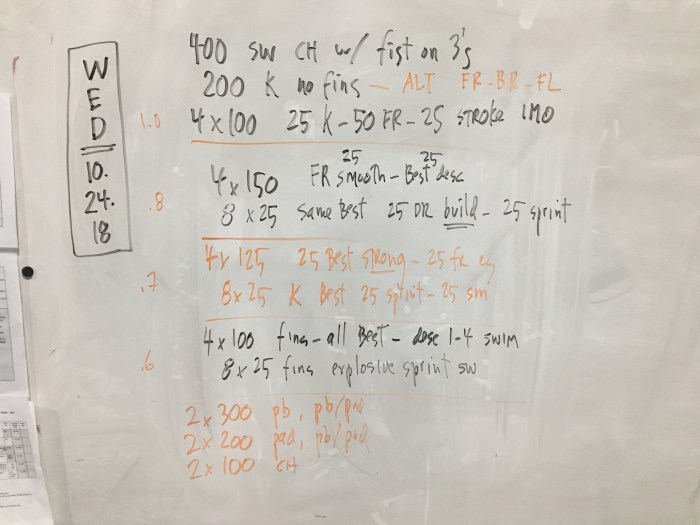 WED
10.
24.
18
400 sw CH w/ fist on 3's
200 K no fins - ALT FR-BR-FL
1.0 4x100 25 K-50 FR-25 STROKE IMO
25 25
4x150 FR smooth-Best desc
.8 8x25 same Best 25 DR build-25 sprint
4x125 25 Best strong-25 fr ez
.7 8x25 K Best 25 sprint-25 sm
4x100 fins-all Best-desc 1-4 SWIM
.6 8x25 fins explosive sprint sw
2x300 pb, pb/pad
2x200 pad, pb/pad
2x100 CH